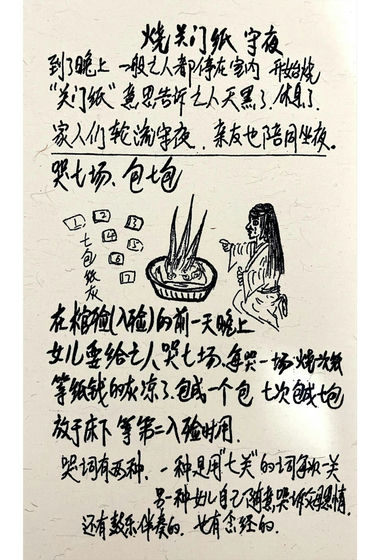 烧关门纸 守夜
到了晚上 一般亡人都停在室内 开始烧
“关门纸”意思告诉亡人天黑了，休息了.
家人们轮流守夜，亲友也陪同坐夜。
哭七场、包七包
1 2 3
4 5
6 7
七包纸灰
在棺殓(入殓)的前一天晚上
女儿要给亡人哭七场、每哭一场烧次纸
等纸钱的灰凉了.包成一个包 七次包成七包
放于床下 等第二入殓时用.
哭词有两种、一种是用“七关”的词每次一关
另一种女儿自己随意哭诉父恩情.
还有鼓乐伴奏的、也有念经的.